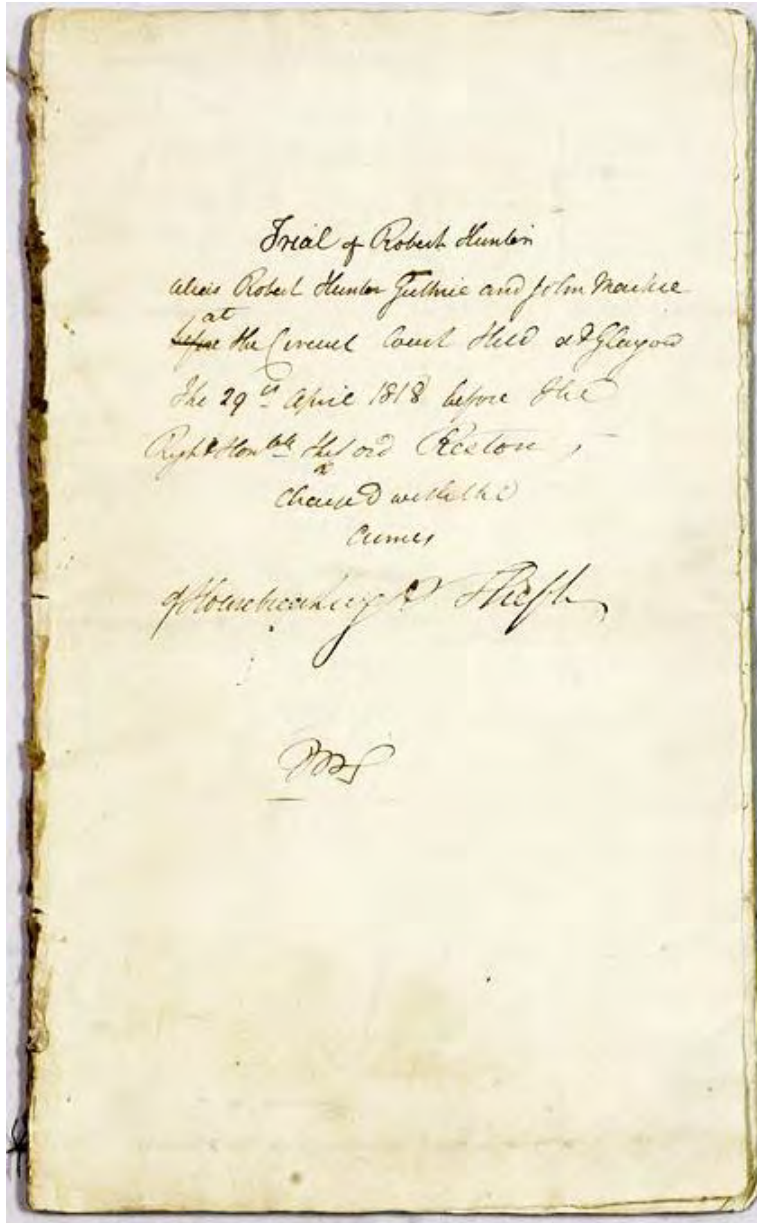 Trial of Robert Hunter
alias Robert Hunter Guthrie and John Mackie
at
before the Circuit Court Held at Glasgow
The 29th April 1818 before The
Right Honble the Lord Reston,
Charged with the
Crimes
of Housebreaking & Theft